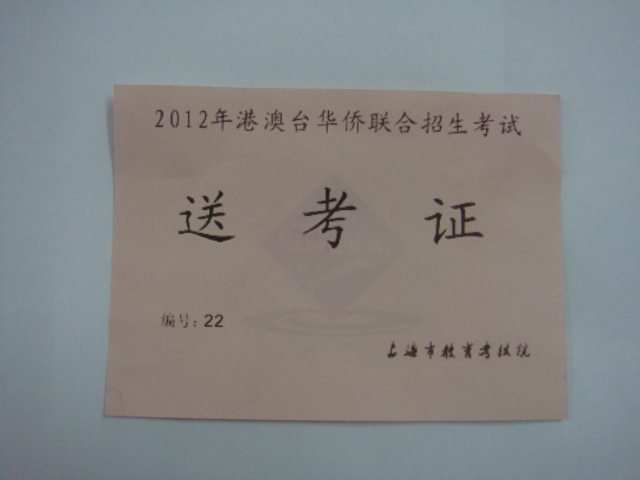 2012年港澳台华侨联合招生考试
送考证
编号：22
上海市教育考试院